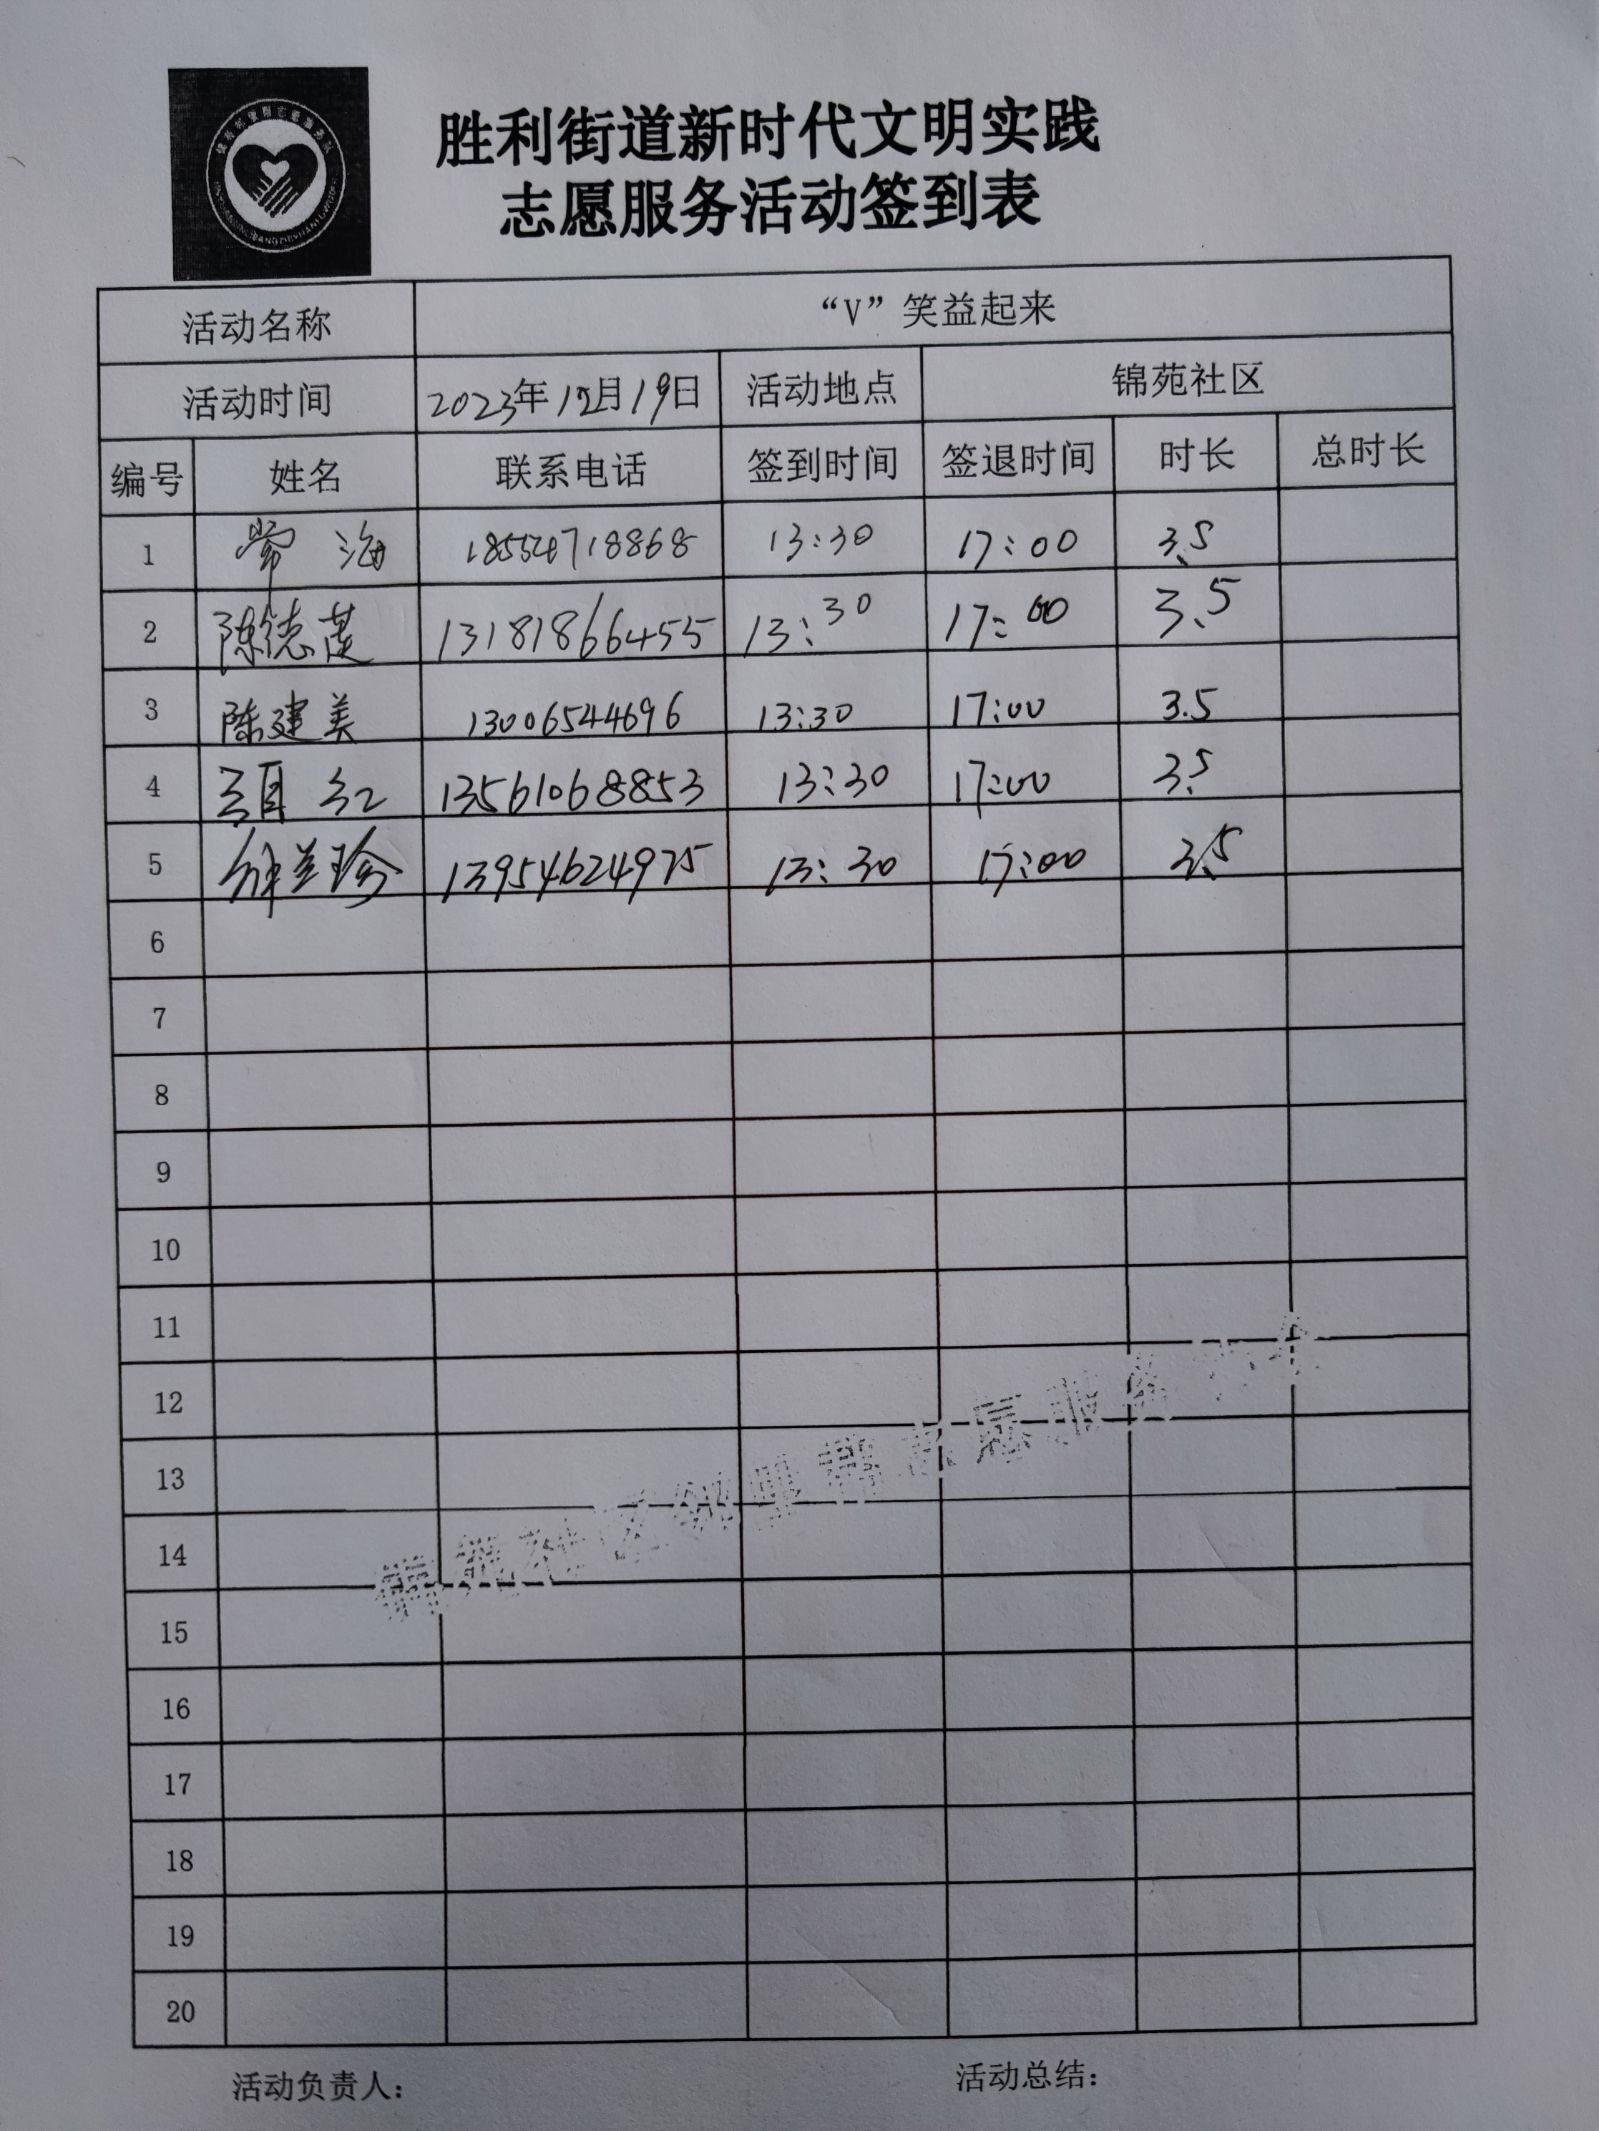 胜利街道新时代文明实践
志愿服务活动签到表
活动名称 “V”笑益起来
活动时间 2023年12月19日 活动地点 锦苑社区
编号 姓名 联系电话 签到时间 签退时间 时长 总时长
1 常海 18554718868 13:30 17:00 3.5
2 陈德 13181866455 13:30 17:00 3.5
3 陈建美 13006544696 13:30 17:00 3.5
4 红 13561068853 13:30 17:00 3.5
5 钟兰珍 13954624975 13:30 17:00 3.5
6
7
8
9
10
11
12
13
14
15
16
17
18
19
20
锦苑社区邻里帮志愿服务协会
活动负责人：
活动总结：